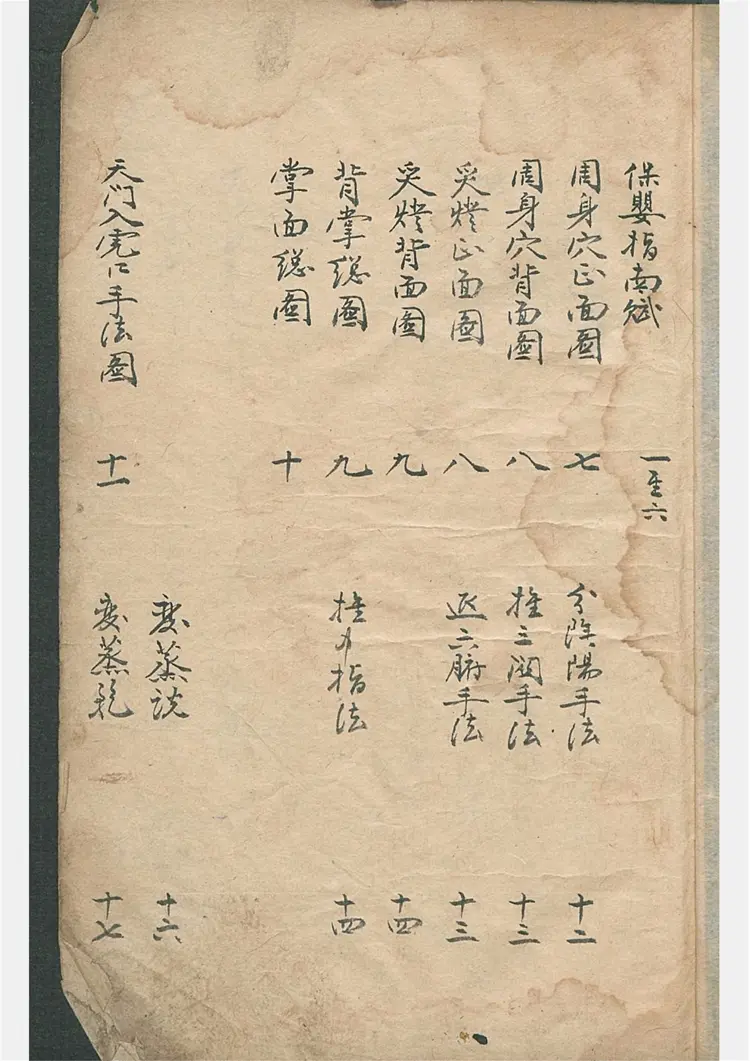 保嬰指南賦 一至六
周身穴正面圖 七
周身穴背面圖 八
灸燈正面圖 八
灸燈背面圖 九
背掌總圖 九
掌面總圖 十
天门入虎口手法圖 十一
分陰陽手法 十二
推三関手法 十三
退六腑手法 十三
十四
推指法 十四
变蒸说 十六
变蒸 十七